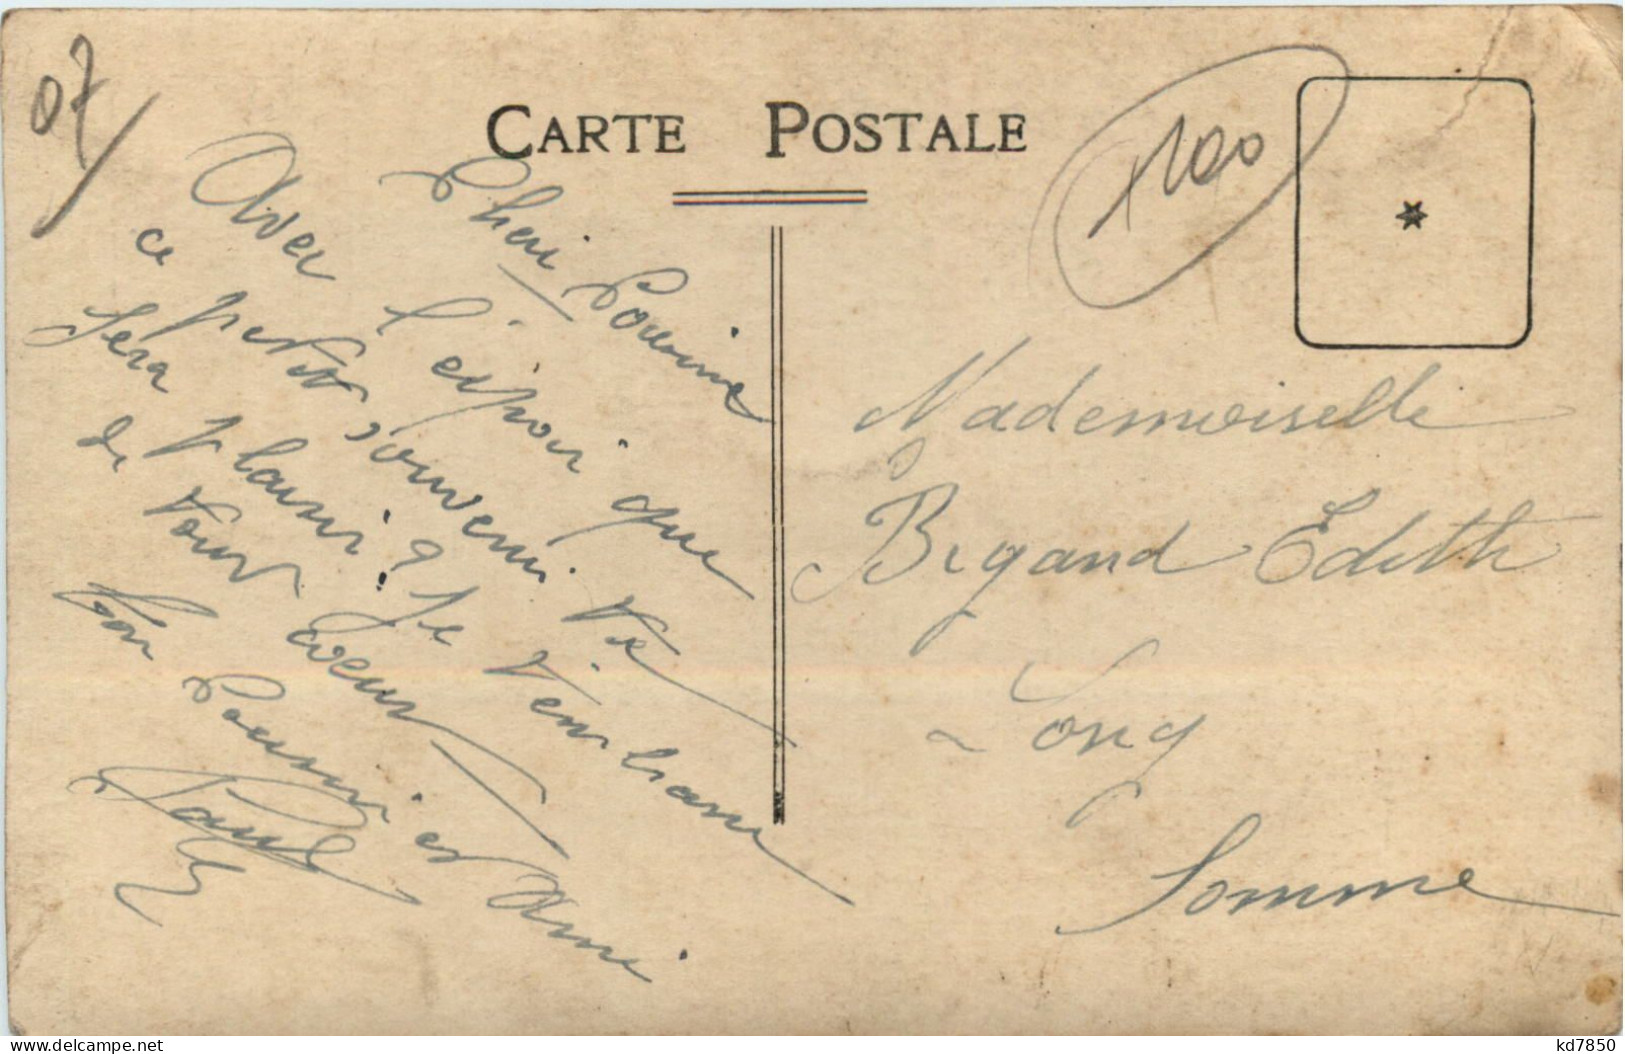 07
CARTE POSTALE
100
Cheri Cousine
Avec l'espoir que
ce petit souvenir te
sera plaisir? Je t'embrasse
de tout coeur
Ton Cousin et Ami
Paul
Mademoiselle
Bigand Edith
à Long
Somme
delcampe.net
kd7850